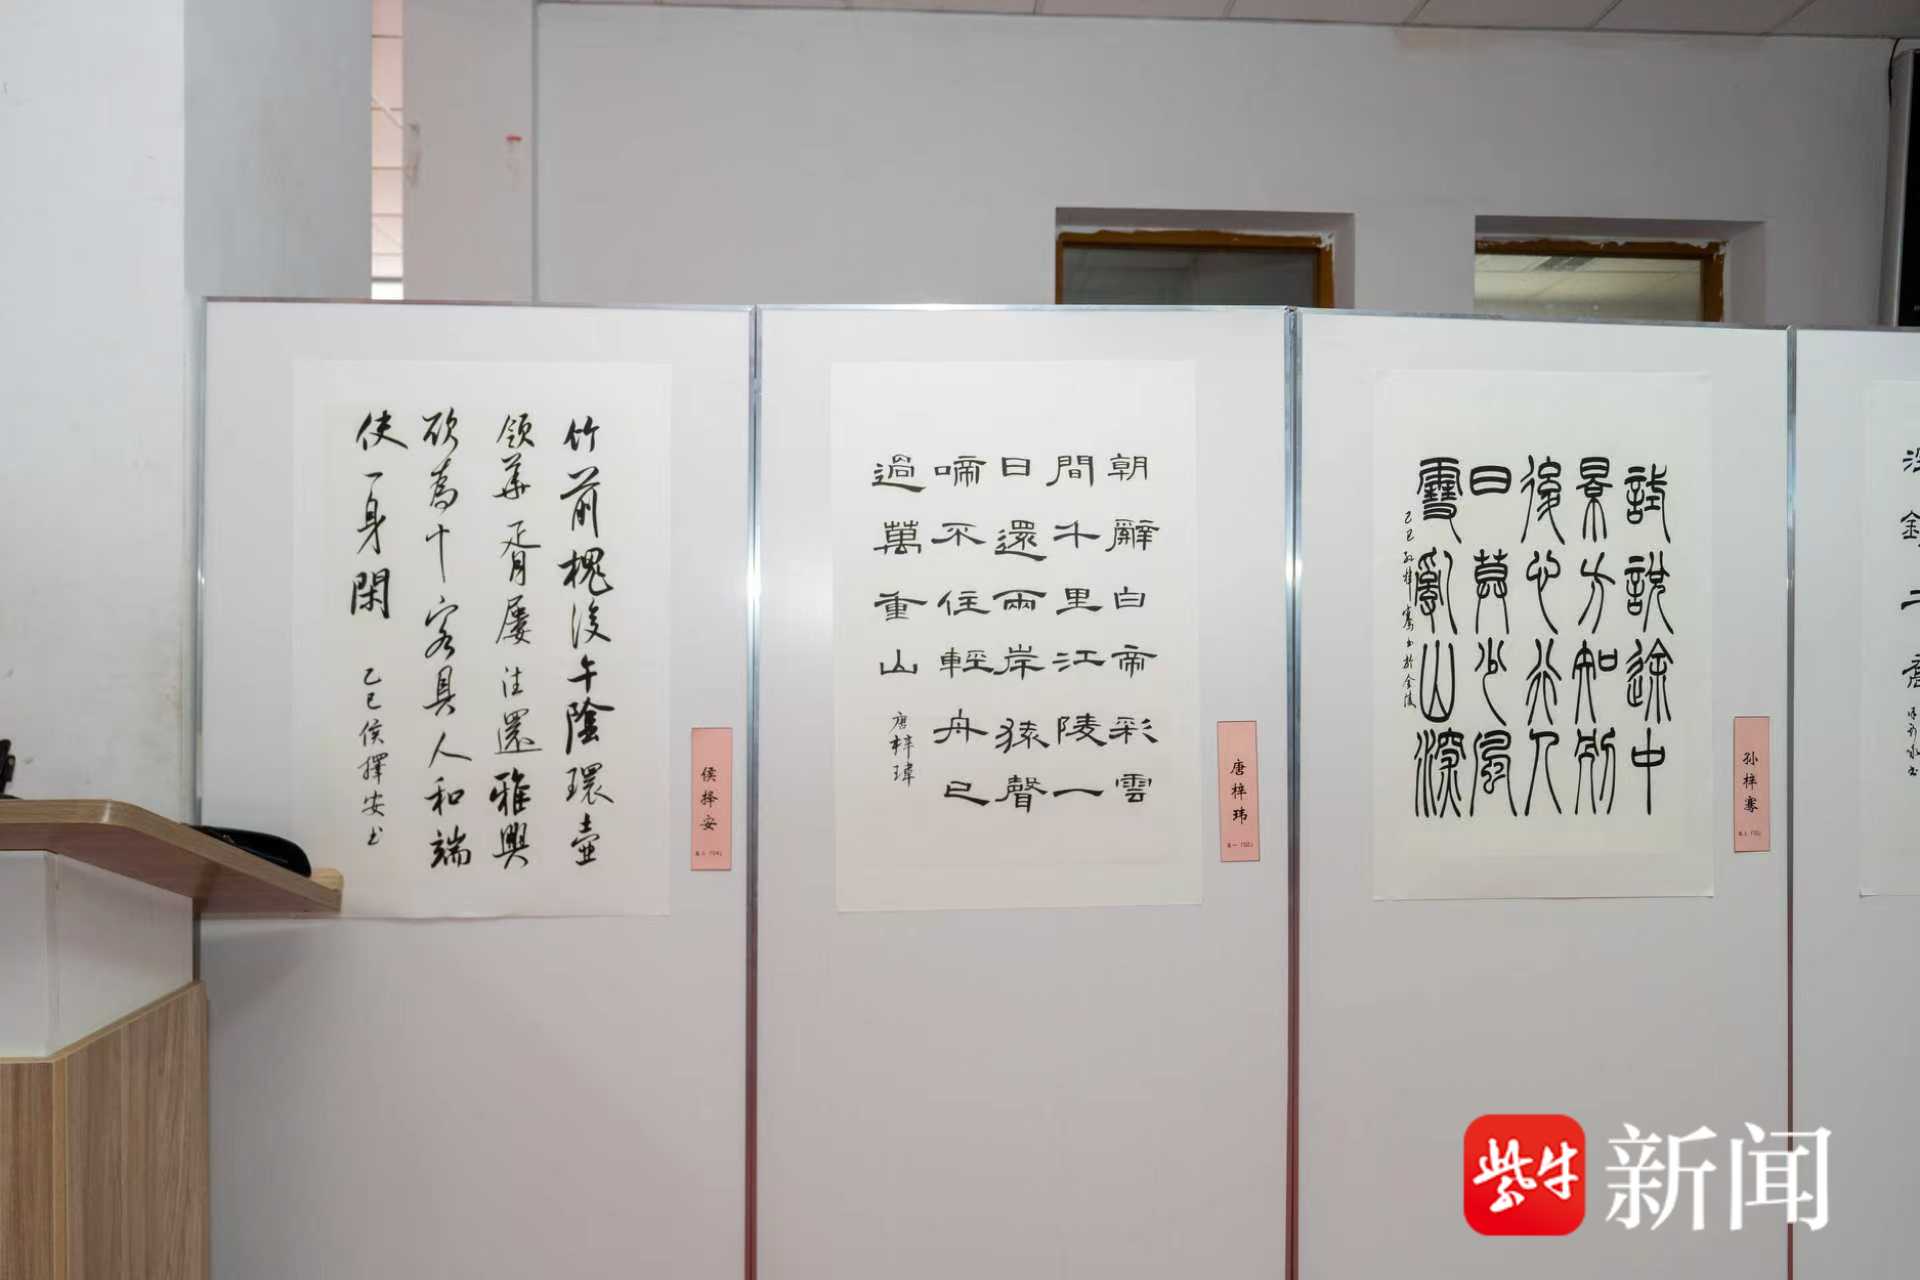 竹前槐後午陰環壺
領華胥屡往還雅興
欲為十客具人和端
使一身閑
乙巳侯擇安书
侯择安
朝辭白帝彩雲
間千里江陵一
日還兩岸猿聲
啼不住輕舟已
過萬重山
唐梓瑋
唐梓玮
試說途中
景方知別
後心行人
日莫少風
雪亂山深
乙巳孙梓骞书於金陵
孙梓骞
紫牛新闻